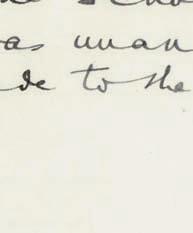 as unan
de to the